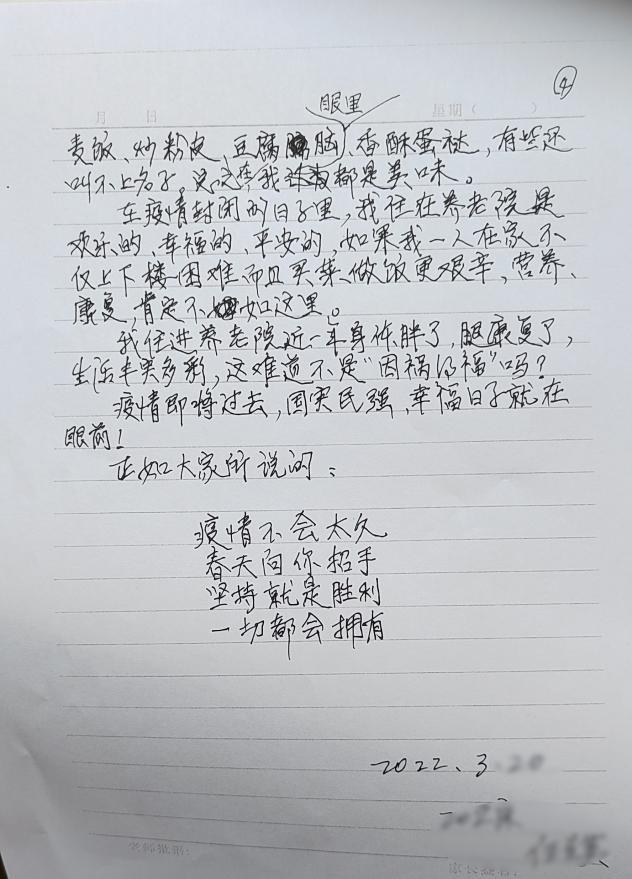 ④
月 日 星期（ ）
眼里
麦饭、炒粉皮、豆腐脑、香酥蛋挞，有些还
叫不上名子，总之在我都是美味。
在疫情封闭的日子里，我住在养老院是
欢乐的、幸福的、平安的，如果我一人在家不
仅上下楼困难而且买菜、做饭更艰辛，营养、
康复肯定不如这里。
我住进养老院近一年身体胖了，腿康复了，
生活丰富多彩，这难道不是“因祸得福”吗？
疫情即将过去，国实民强，幸福日子就在
眼前！
正如大家所说的：
疫情不会太久
春天向你招手
坚持就是胜利
一切都会拥有
2022、3.20